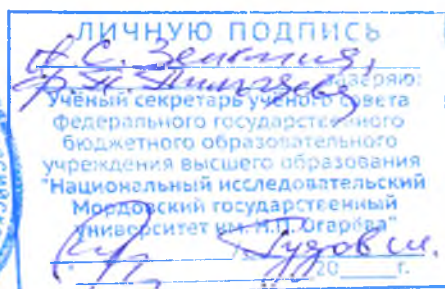 ЛИЧНУЮ ПОДПИСЬ
заверяю:
Учёный секретарь учёного совета
федерального государственного
бюджетного образовательного
учреждения высшего образования
"Национальный исследовательский
Мордовский государственный
университет им. Н.П. Огарёва"
20 г.